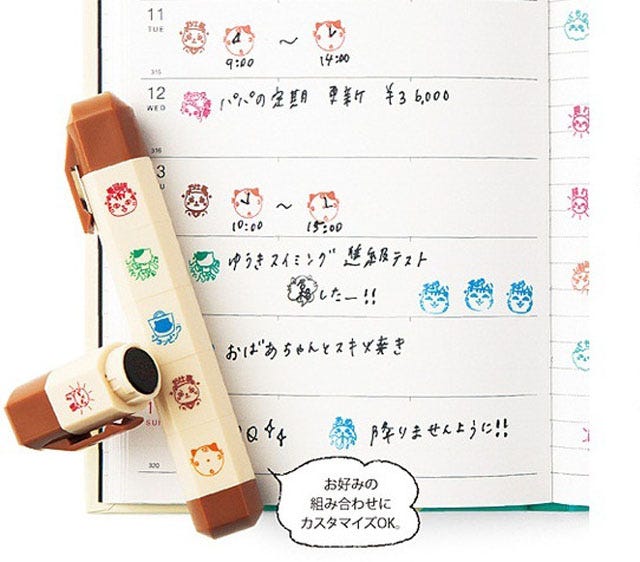 11
TUE
〜
9:00 14:00
315
12
WED
パパの定期 更新 ¥36,000
316
3
U
〜
10:00 15:00
ゆうきスイミング 進級テスト
したー!!
おばあちゃんと
1
SUN
Q
降りませんように!!
320
お好みの
組み合わせに
カスタマイズOK。